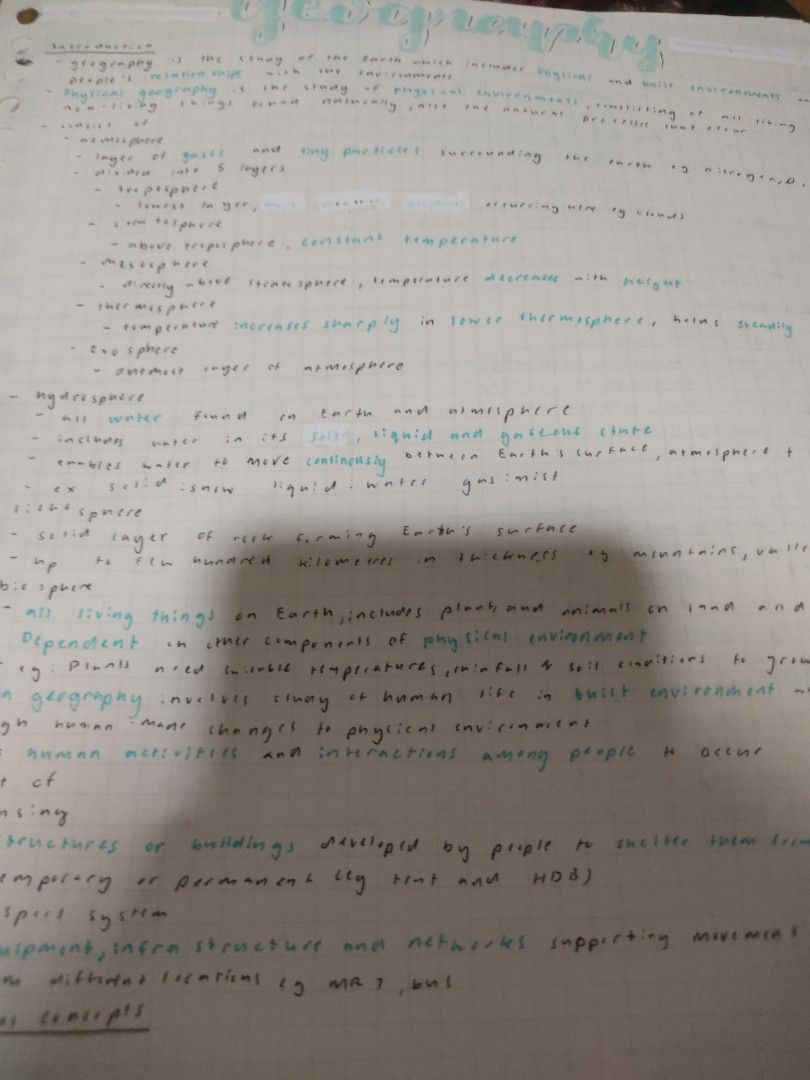 geography
Introduction
- geography is the study of the Earth which includes physical and built environments
people's relationships with the environments
- Physical geography is the study of physical environments, consisting of all living
non-living things found naturally, the natural processes that occur
- consist of
- atmosphere
- layer of gases and tiny particles surrounding the Earth eg nitrogen, O,
- divided into 5 layers
- troposphere
- lowest layer, most weather occurring here eg clouds
-
- above troposphere, constant temperature
- mesosphere
- directly above stratosphere, temperature decreases with height
- thermosphere
- temperature increases sharply in lower thermosphere, holds steadily
- Exosphere
- outmost layer of atmosphere
- hydrosphere
- all water found on Earth and atmosphere
- includes water in its solid, liquid and gaseous state
- enables water to move continously between Earth's surface, atmosphere +
- ex solid:snow liquid:water gas:mist
lithosphere
- solid layer of rock forming Earth's surface
- up to few hundred kilometres in thickness eg mountains, valle
biosphere
- all living things on Earth, includes plants and animals on land and
Dependent on other components of physical environment
eg. Plants need suitable temperatures, rainfall & soil conditions to grow
n geography involves study of human life in built environment
gh human-made changes to physical environment
s human activities and interactions among people to occur
t of
using
tructures or buildings developed by people to shelter them from
emporary or permanent (eg tent and HDB)
sport system
uipment, infrastructure and networks supporting movement
m different locations eg MRT, bus
concepts